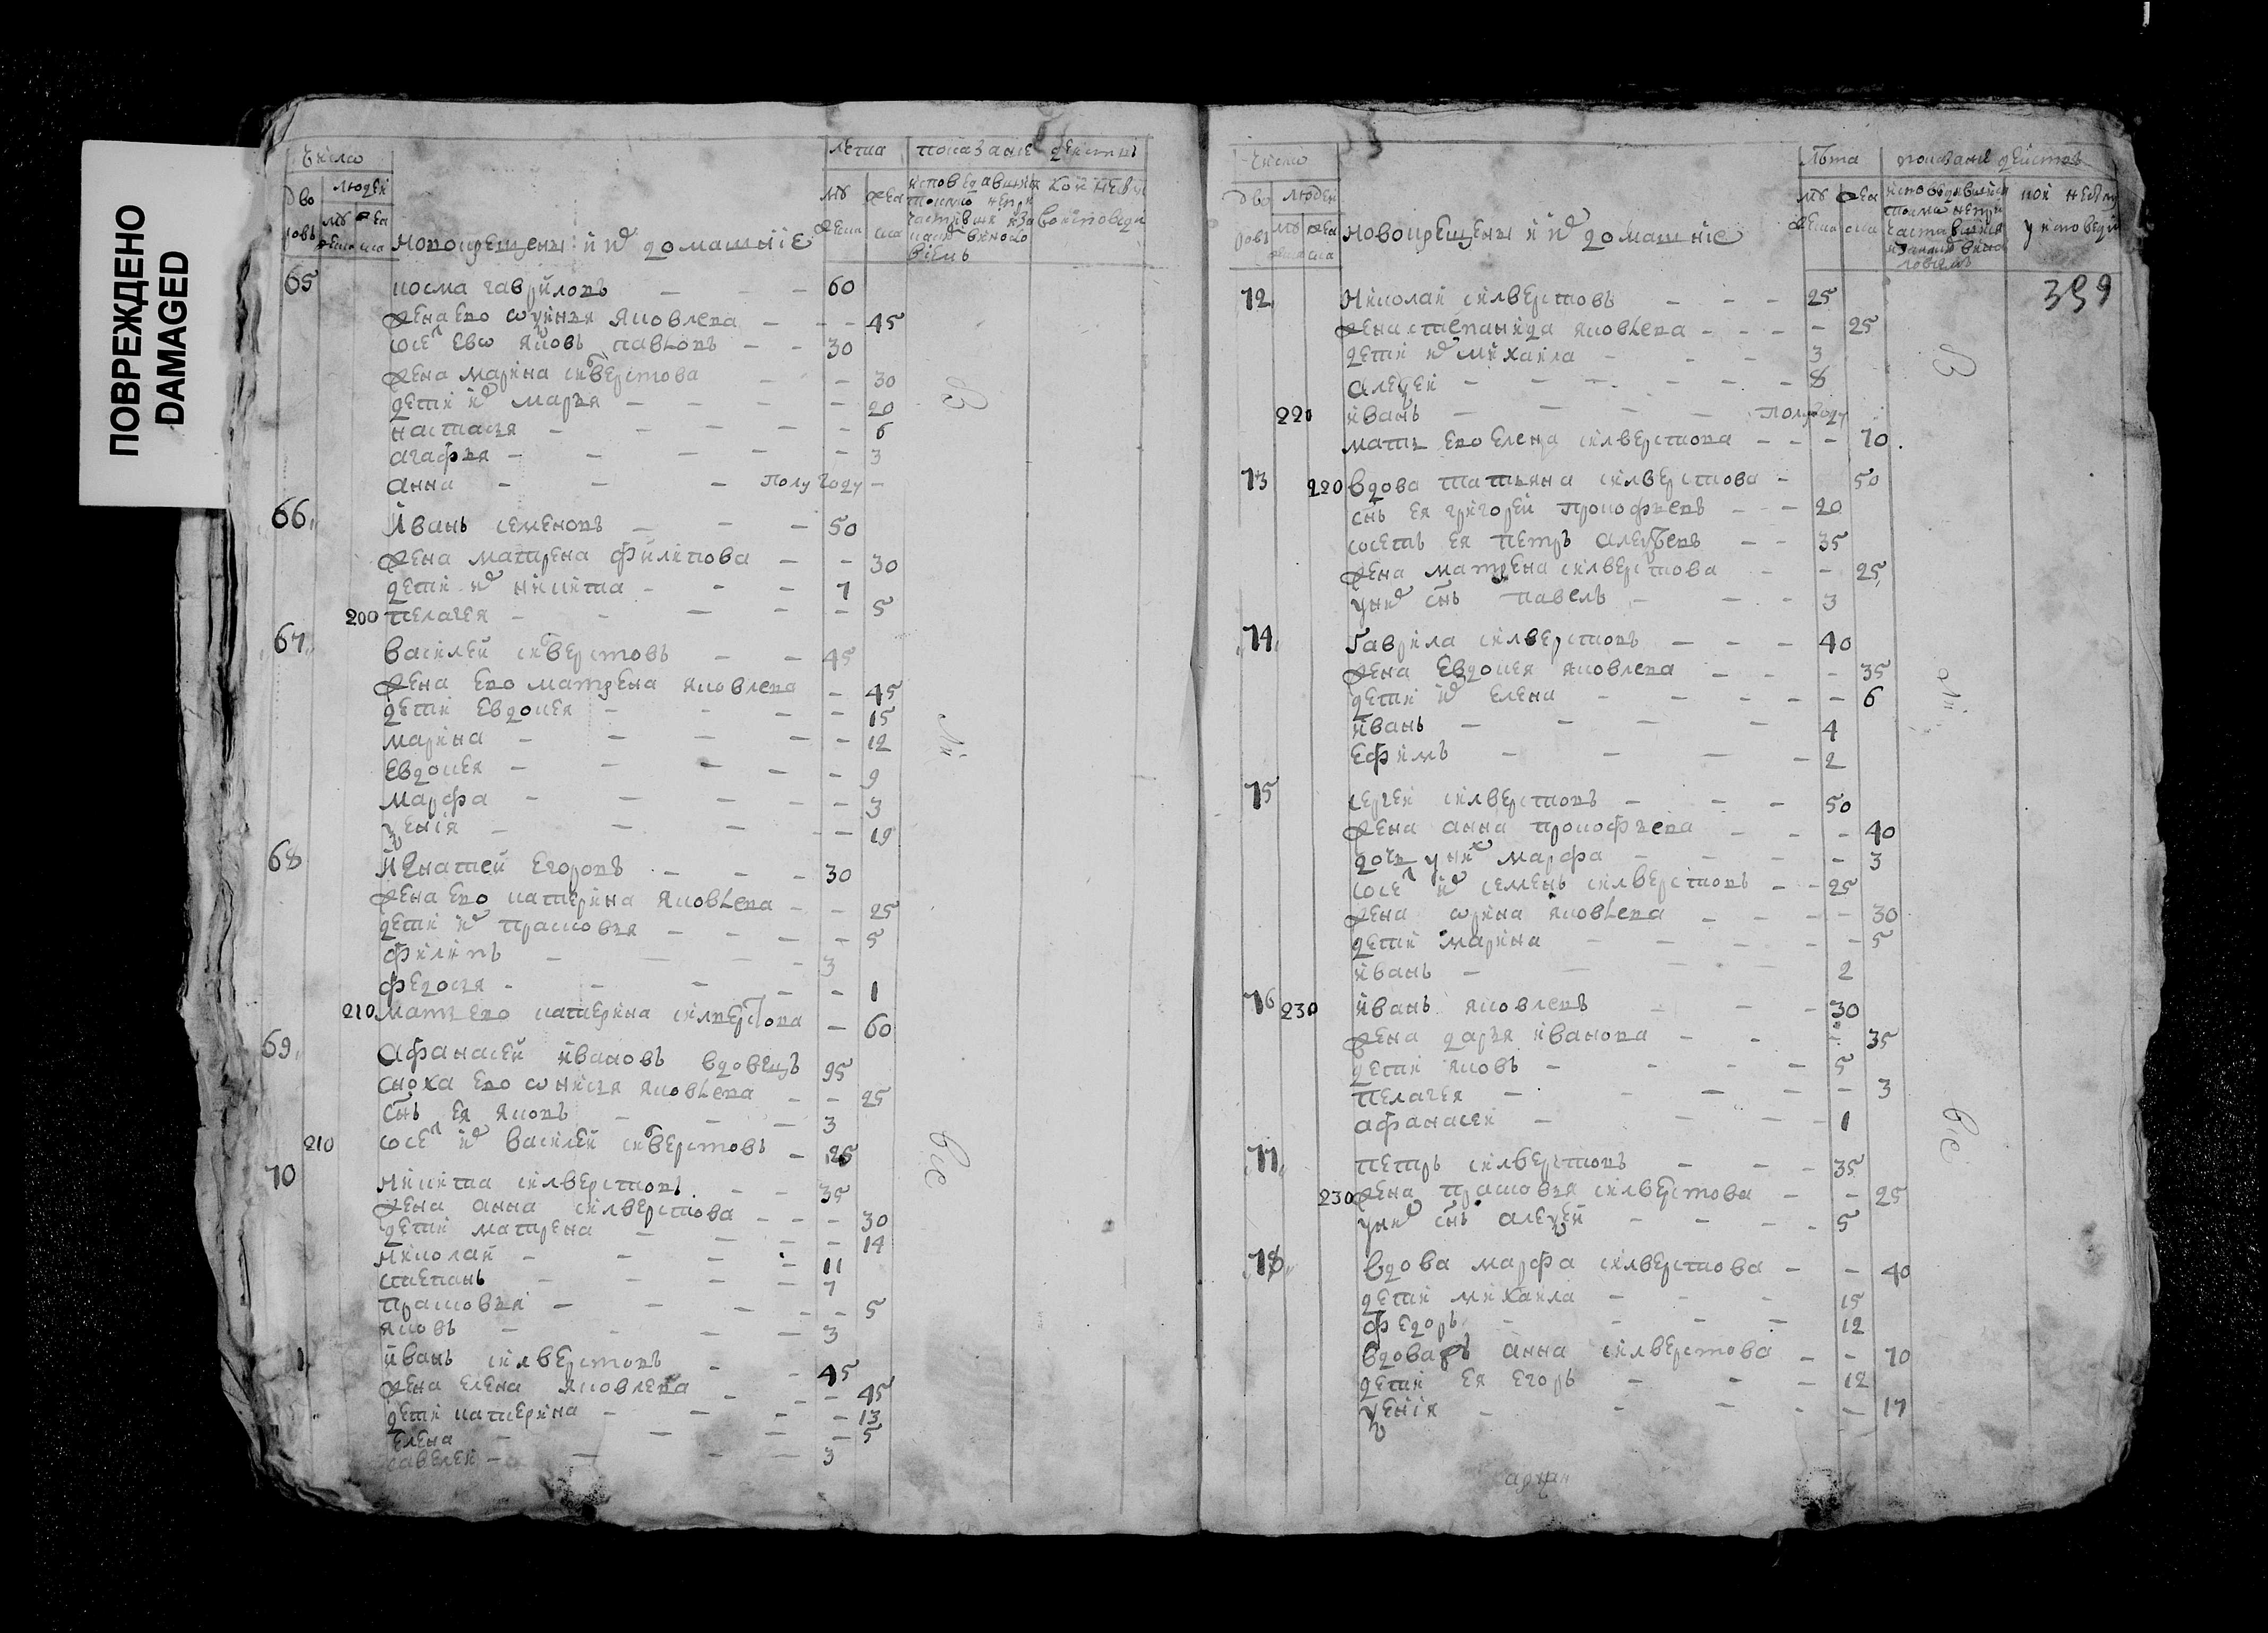 ПОВРЕЖДЕНО
DAMAGED
число
лета показание действъ
дво людей
муж жен
ровъ
новокрещены и ихъ домашнiе
65 косма гавриловъ 60
жена ево яковлева 45
сосед ево яковъ павловъ 30
жена марина силверстова 30
дети их марья 20
настасья 6
агафья 3
анна полугоду
66 Иванъ семеновъ 50
жена матрена филипова 30
дети их никита 7
200 пелагея 5
67 василей силверстовъ 45
жена ево матрена яковлева 45
дети евдокея 15
марина 12
евдокея 9
марфа 3
ѯенiя 19
68 Игнатей егоровъ 30
жена ево катерина яковлева 25
дети их прасковья 5
филипъ 3
федосья 1
210 мать ево катерина силверстова 60
69 афанасей ивановъ вдовецъ 95
сноха ево яковлева 25
снъ ея яковъ 3
210 сосед их василей силверстовъ 25
70 никита силверстовъ 35
жена анна силверстова 30
дети матрена 14
николай 11
степанъ 7
прасковья 5
яковъ 3
иванъ силверстовъ 45
жена елена яковлева 45
дети катерина 13
елена 5
савелей 3
число
лѣта показанiе действъ
дво людей
муж жен
новокрещены и их домашнiе
399
72 николай силверстовъ 25
жена степанида яковлева 25
дети их михаила 3
алеѯей 8
220 иванъ полугоду
мать ево елена силверстова 70
73 220 вдова татьяна силверстова 50
снъ ея григорей прокофьевъ 20
соседъ ея петръ алеѯеевъ 35
жена матрена силверстова 25
у них снъ павелъ 3
74 Гаврила силверстовъ 40
жена евдокея яковлева 35
дети их елена 6
иванъ 4
ефимъ 2
75 сергей силверстовъ 50
жена анна прокофьева 40
дочь у них марфа 3
сосед их семенъ силверстовъ 25
жена ѡрина яковлева 30
дети марина 5
иванъ 2
76 230 иванъ яковлевъ 30
жена дарья иванова 35
дети яковъ 5
пелагея 3
афанасей 1
77 петръ силверстовъ 35
230 жена прасковья силверстова 25
у них снъ алеѯей 5
78 вдова марфа силверстова 40
дети михаила 15
федоръ 12
вдова анна силверстова 70
дети ея егоръ 12
ѯенiя 17